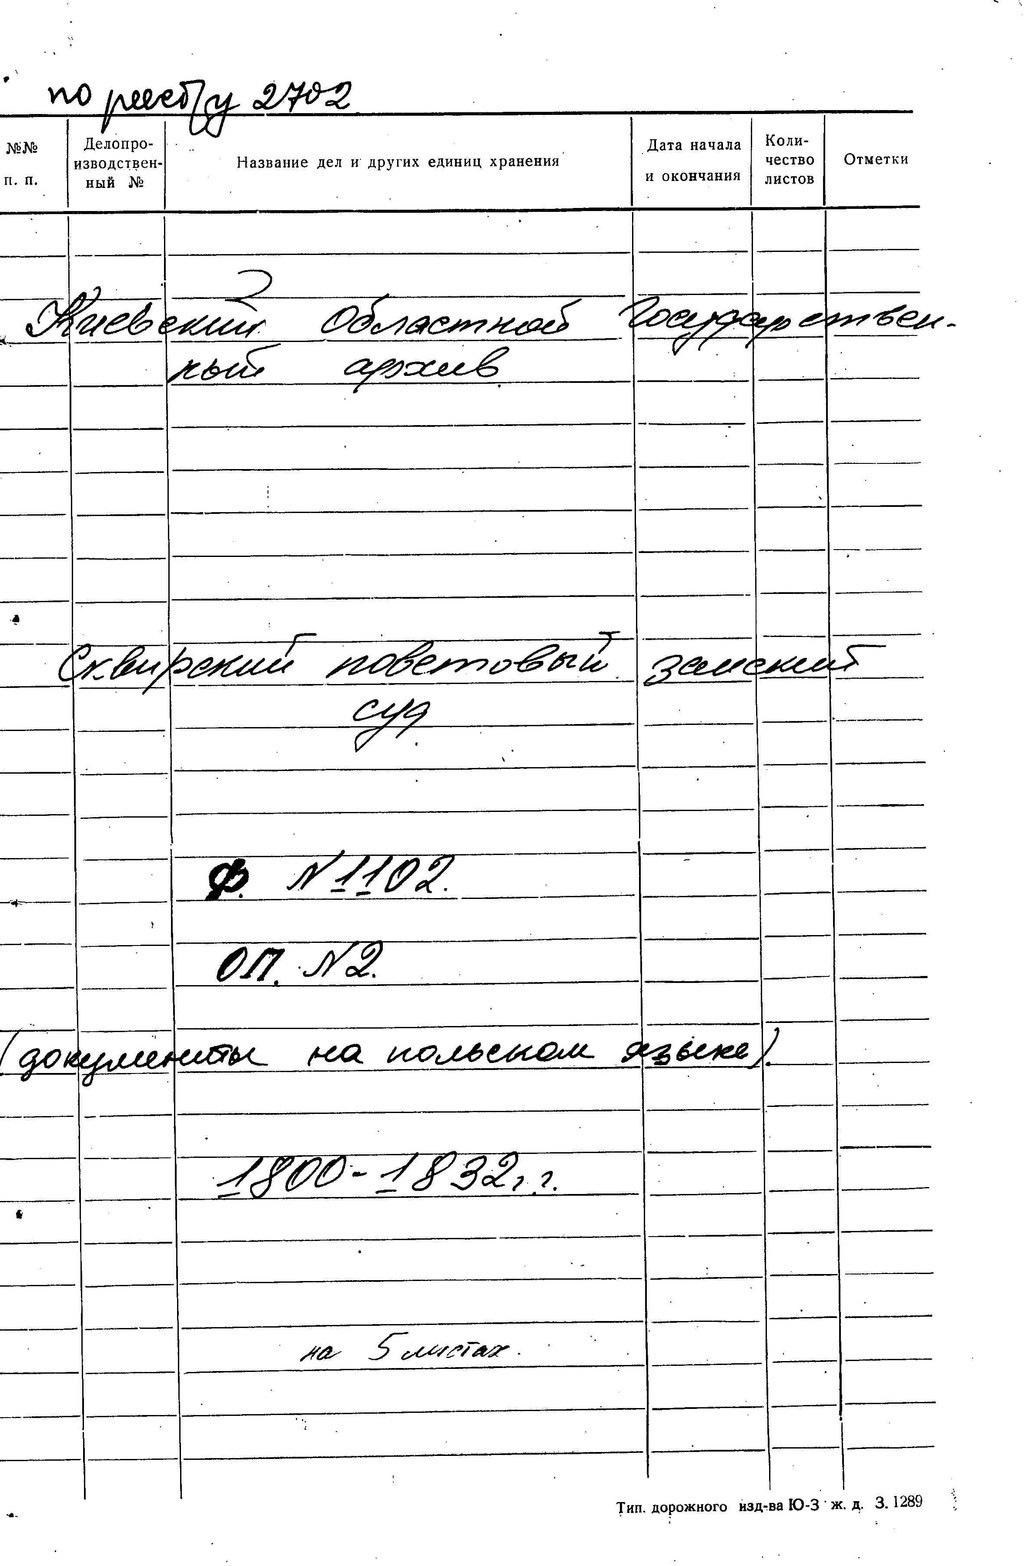 по реестру 2702
№№ п. п.
Делопроизводственный №
Название дел и других единиц хранения
Дата начала и окончания
Количество листов
Отметки
Киевский Областной Государствен-
ный архив
Сквирский поветовый земский
суд
Ф. N 1102.
ОП. N 2.
(документы на польском языке).
1800-1832 г.г.
на 5 листах.
Тип. дорожного изд-ва Ю-З ж. д. З. 1289